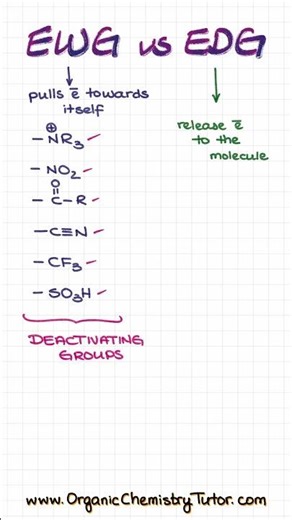 EWG vs EDG
pulls ē towards
itself
release ē
to the
molecule
⊕
–NR₃
–NO₂
O
–C–R
–C≡N
–CF₃
–SO₃H
DEACTIVATING
GROUPS
www.OrganicChemistryTutor.com